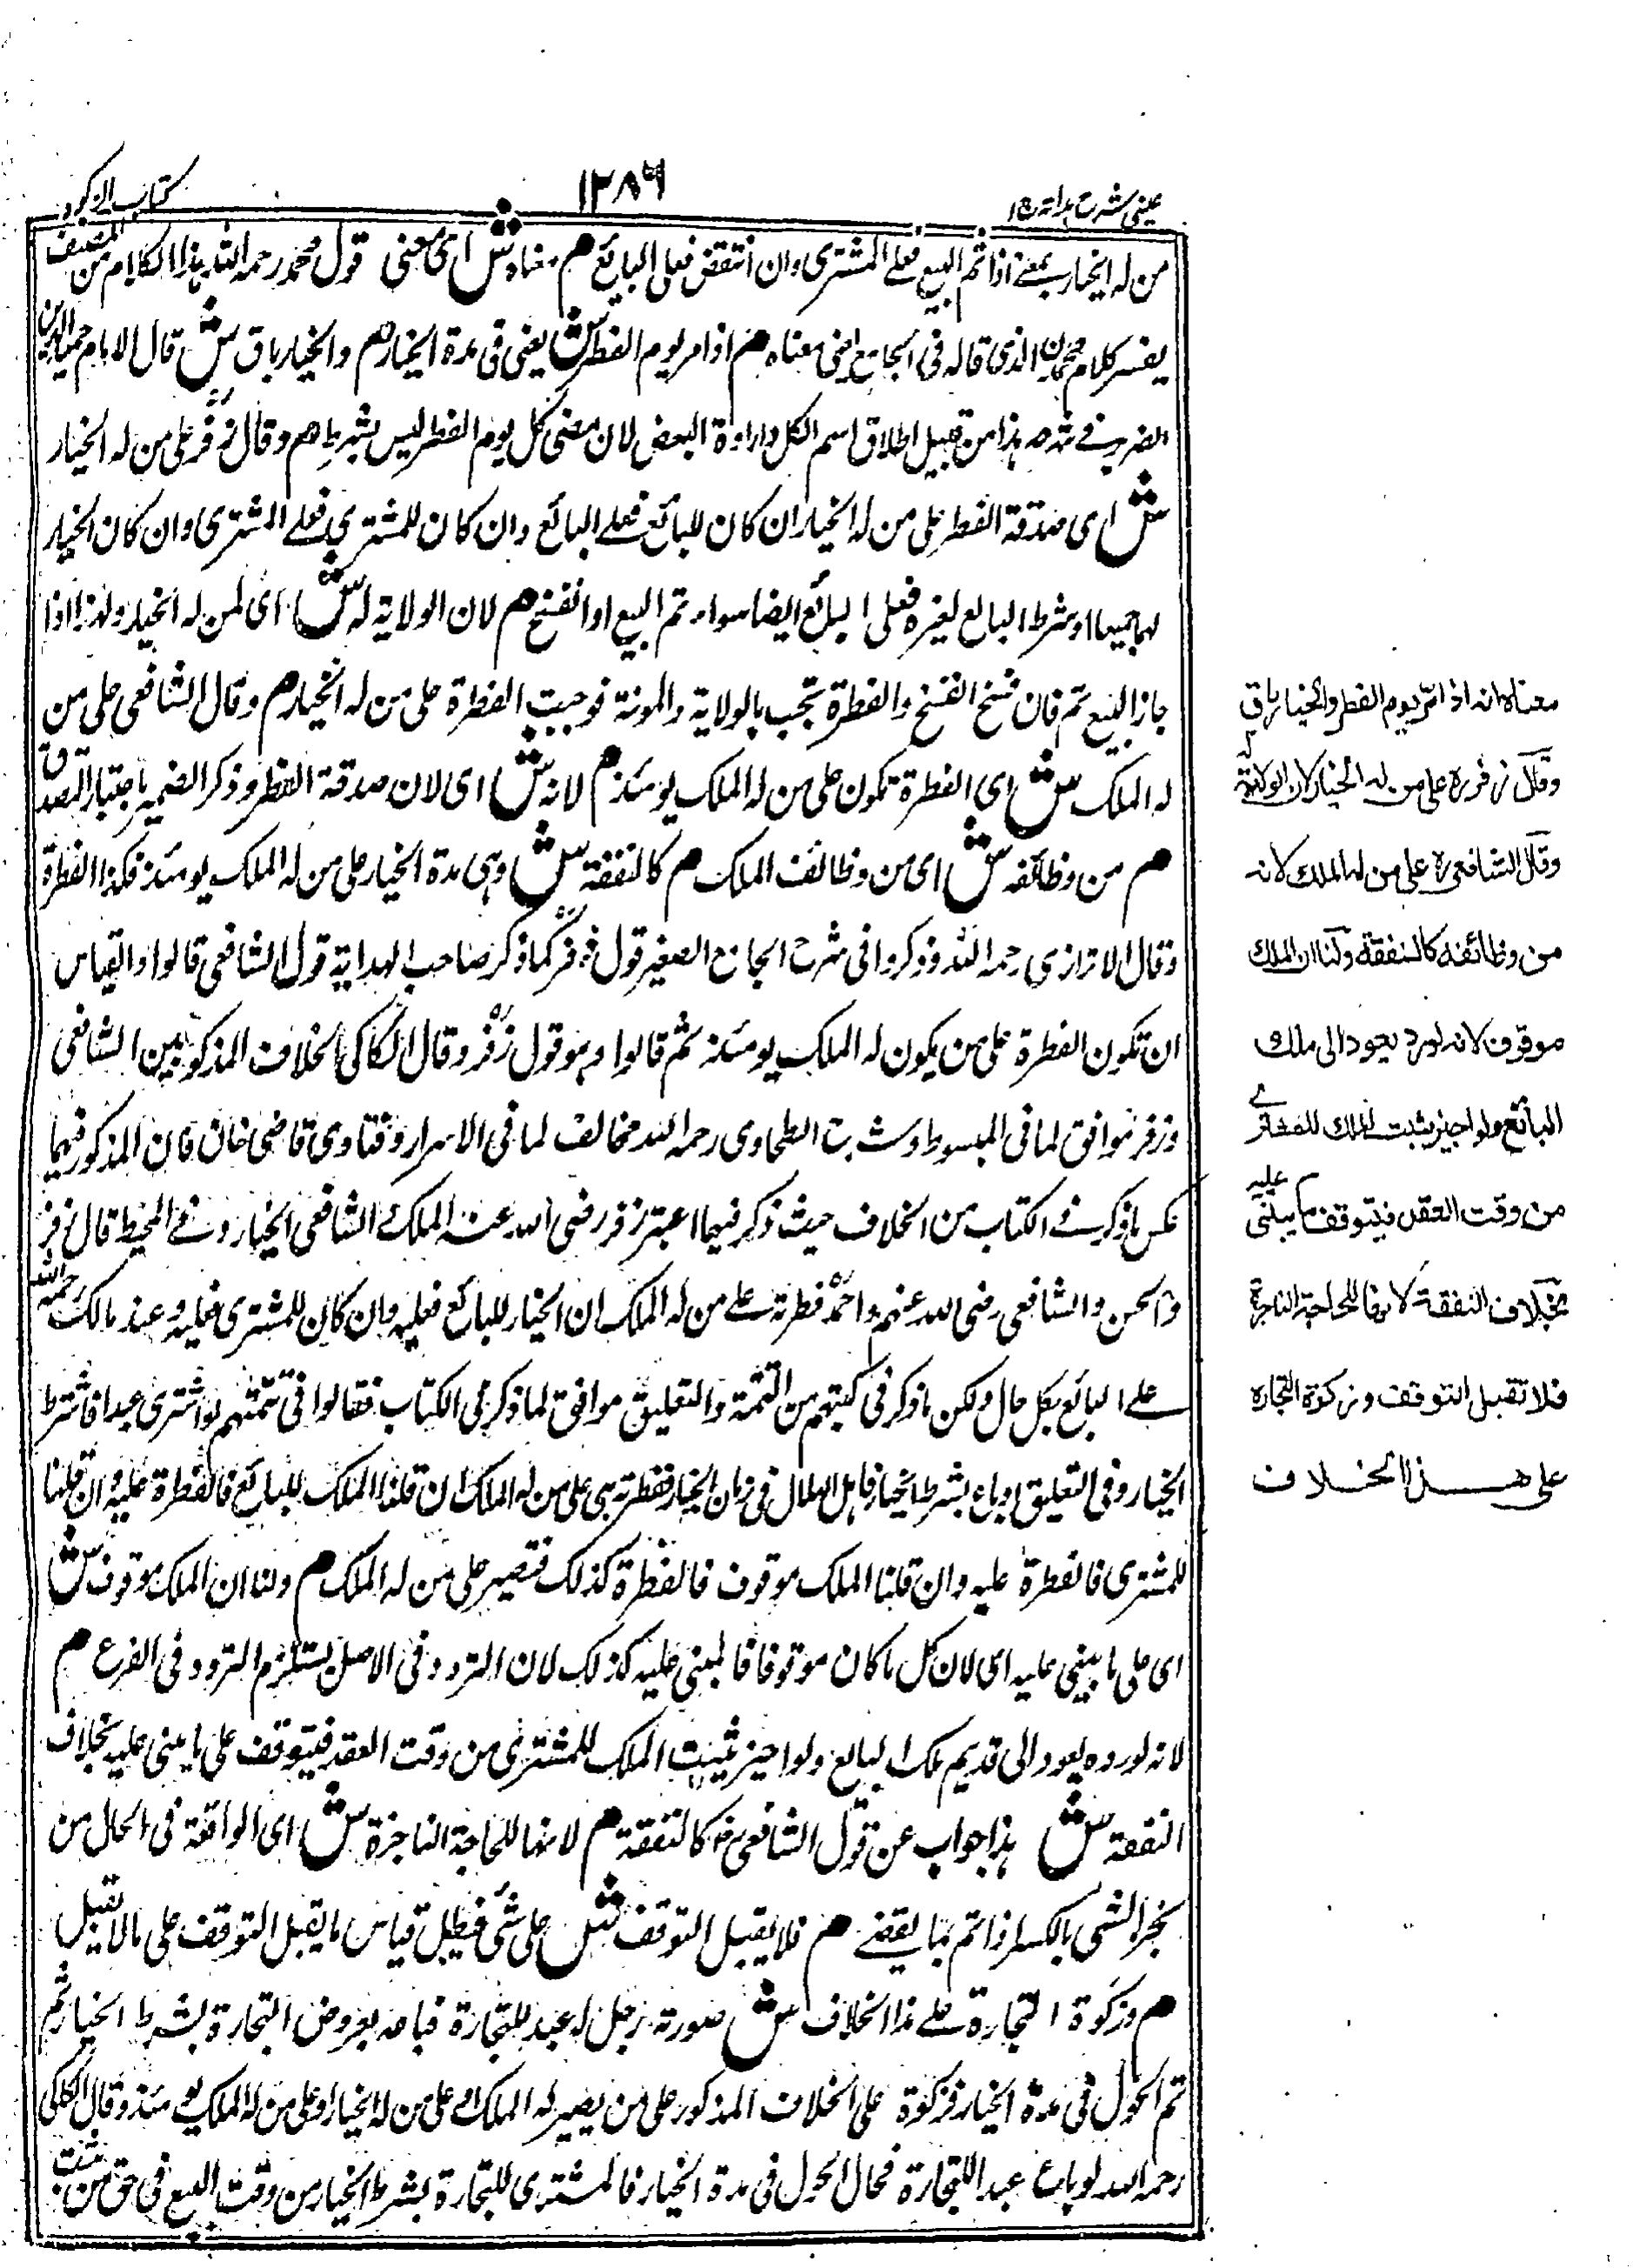 عینی شرح ہدایہ ج ۱
١٢٨٦
كتاب الزكوة
من له الخيار بمعنى اذا تم البيع فعلى المشترى وان انتقض فعلى البائع م معناه ش اى معنى قول محمد رحمه الله هذا الكلام من المصنف
يفسر كلام محمد الذى قاله فى الجامع اى معناه م اذا مر يوم الفطر ش يعنى فى مدة الخيار م والخيار باق ش قال الامام حميد الدين
الضرير فى شرحه هذا من قبيل اطلاق اسم الكل وارادة البعض لان مضى كل يوم الفطر ليس بشرط م وقال زفر على من له الخيار
ش اى صدقة الفطر على من له الخيار ان كان للبائع فعلى البائع وان كان للمشترى فعلى المشترى وان كان الخيار
لهما جميعا او شرط البائع لغيره فعلى البائع ايضا سواء تم البيع او انفسخ م لان الولاية له ش اى لمن له الخيار ولهذا اذا
جاز البيع تم فان فسخ انفسخ والفطرة تجب بالولاية والمونة فوجبت الفطرة على من له الخيار م وقال الشافعى على من
له الملك ش اى الفطرة تكون على من له الملك يومئذ م لانه ش اى لان صدقة الفطر وذكر الضمير باعتبار التصدق
م من وظائفه ش اى من وظائف الملك م كالنفقة ش وهى مدة الخيار على من له الملك يومئذ فكذا الفطرة
وقال الاترازى رحمه الله وذكروا فى شرح الجامع الصغير قول زفر كما ذكر صاحب الهداية قول الشافعى قالوا والقياس
ان تكون الفطرة على من يكون له الملك يومئذ ثم قالوا وهو قول زفر وقال الكاكى الخلاف المذكور بين الشافعى
وزفر موافق لما فى المبسوط وشرح الطحاوى رحمه الله مخالف لما فى الاسرار وفتاوى قاضى خان فان المذكور فيهما
عكس ما ذكر فى الكتاب من الخلاف حيث ذكر فيهما اعتبر زفر رضى الله عنه الملك والشافعى الخيار وفى المحيط قال زفر
والحسن والشافعى رضى الله عنهم واحمد فطرته على من له الملك ان الخيار للبائع فعليه وان كان للمشترى فعليه وعند مالك رحمه الله
على البائع بكل حال ولكن ما ذكر فى كتبهم من التتمة والتعليق موافق لما ذكر فى الكتاب فقالوا فى تتمتهم لو اشترى عبدا فاشترط
الخيار وفى التعليق او باع بشرط الخيار فاهل الهلال فى زمان الخيار ففطرته هى على من له الملك ان قلنا الملك للبائع فالفطرة عليه وان قلنا
للمشترى فالفطرة عليه وان قلنا الملك موقوف فالفطرة كذلك فتصير على من له الملك م ولنا ان الملك موقوف ش
اى على ما يبنى عليه اى لان كل ما كان موقوفا فالمبنى عليه كذلك لان التردد فى الاصل يستلزم التردد فى الفرع م
لانه لو رده يعود الى قديم ملك البائع ولو اجيز يثبت الملك للمشترى من وقت العقد فيتوقف على ما يبنى عليه بخلاف
النفقة ش هذا جواب عن قول الشافعى كالنفقة م لانها للحاجة الناجزة ش اى الواقعة فى الحال من
نجز الشى بالكسر اذا تم م فلا يقبل التوقف ش على شئ فبطل قياس ما يقبل التوقف على ما لا يقبل
م وزكوة التجارة على هذا الخلاف ش صورته رجل له عبد للتجارة فباعه بعروض التجارة بشرط الخيار ثم
تم الحول فى مدة الخيار فزكوة على الخلاف المذكور على من يصير له الملك او على من له الخيار او على من له الملك يومئذ وقال الكاكى
رحمه الله لو باع عبدا للتجارة فحال الحول فى مدة الخيار فالمشترى للتجارة بشرط الخيار من وقت البيع فى حق من ثبت
معناه انه اذا مر يوم الفطر والخيار باق
وقال زفر ره على من له الخيار لان الولاية له
وقال الشافعى ره على من له الملك لانه
من وظائفه كالنفقة ولنا ان الملك
موقوف لانه لو رد يعود الى ملك
البائع ولو اجيز يثبت الملك للمشترى
من وقت العقد فيتوقف ما يبتنى عليه
بخلاف النفقة لانها للحاجة الناجزة
فلا تقبل التوقف وزكوة التجارة
على هـــذا الخـــلاف